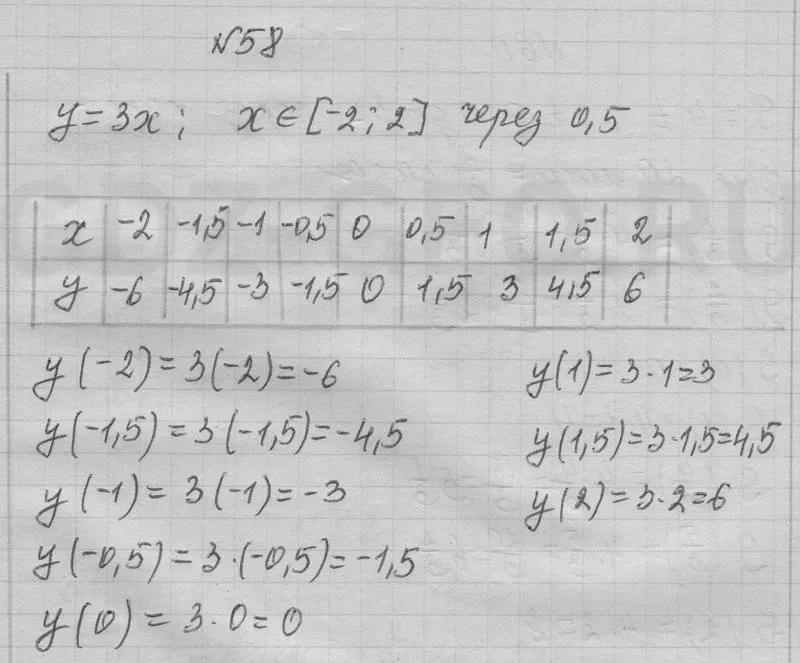 N58
y = 3x; x ∈ [-2; 2] через 0,5
x -2 -1,5 -1 -0,5 0 0,5 1 1,5 2
y -6 -4,5 -3 -1,5 0 1,5 3 4,5 6
y(-2) = 3(-2) = -6
y(-1,5) = 3(-1,5) = -4,5
y(-1) = 3(-1) = -3
y(-0,5) = 3·(-0,5) = -1,5
y(0) = 3·0 = 0
y(1) = 3·1 = 3
y(1,5) = 3·1,5 = 4,5
y(2) = 3·2 = 6